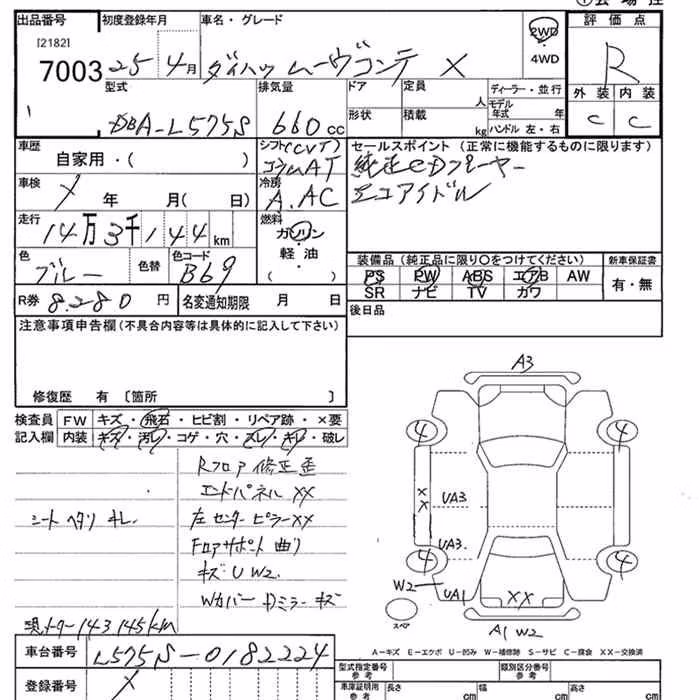 出品番号 初度登録年月 車名・グレード 評価点
[2182]
7003 25年 4月 ダイハツ ムーヴコンテ X 2WD・4WD R
型式 排気量 ドア 定員 人 ディーラー・並行 外装 内装
DBA-L575S 660cc 形状 積載 kg モデル年式 年 ハンドル 左・右 C C
車歴 シフト(CVT) セールスポイント (正常に機能するものに限ります)
自家用・( ) コラムAT 純正CDプレーヤー
車検 X 年 月(日) 冷房 A.AC エコアイドル
走行 14万3千144km 燃料 ガソリン・軽油・( )
色 ブルー 色替 色コード B69
装備品 (純正品に限り○をつけてください) 新車保証書
PS PW ABS エアB AW 有・無
SR ナビ TV カワ
R券 8.280円 名変通知期限 月 日
後日品
注意事項申告欄(不具合内容等は具体的に記入して下さい)
修復歴 有 〔箇所 〕
検査員記入欄 FW キズ・飛石・ヒビ割・リペア跡・×要
内装 キズ・汚レ・コゲ・穴・スレ・キレ・破レ
Rフロア修正歪
エンドパネルXX
シートヘタリ キレ. 左センターピラーXX
Fコアサポート曲り
キズU W2.
Wカバー Dミラーキズ
現メーター143145km
A3
4 4
XX UA3
UA3.
4 4
W2 UA1 XX
スペア
A1 W2
A-キズ E-エクボ U-凹み W-補修跡 S-サビ C-腐食 XX-交換済
車台番号 L575S-0182224
登録番号 X
型式指定番号 参考 類別区分番号 参考
車庫証明用 参考 長さ cm 幅 cm 高さ cm